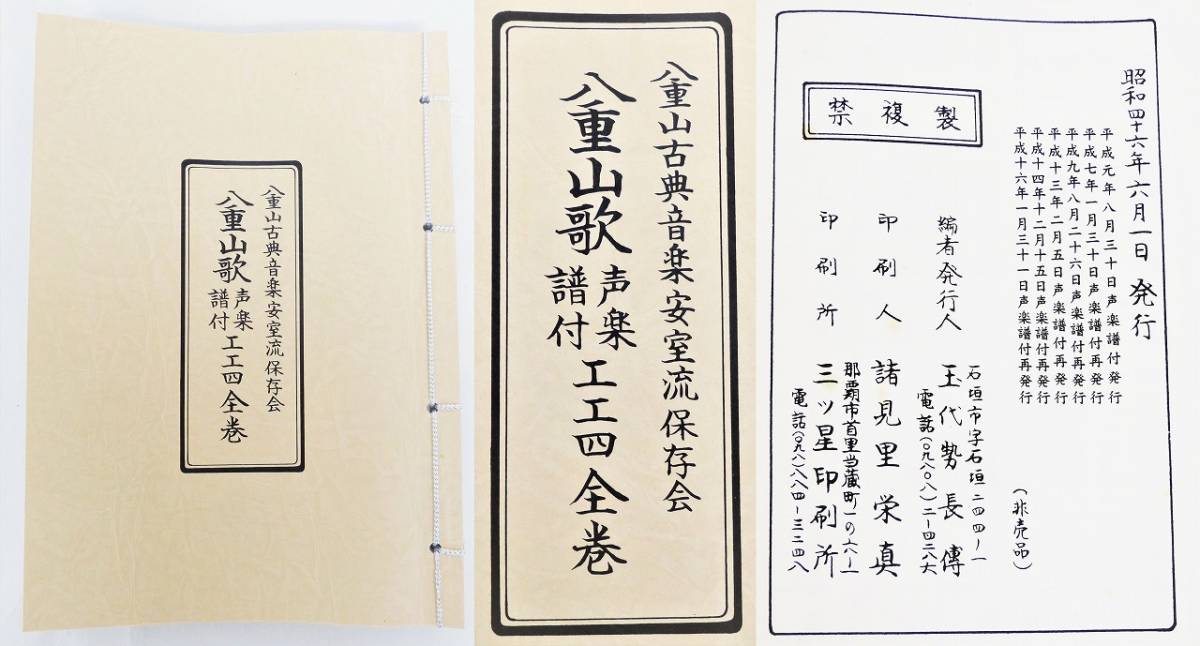 八重山古典音楽安室流保存会
八重山歌 声楽譜付 工工四 全巻
八重山古典音楽安室流保存会
八重山歌 声楽譜付 工工四 全巻
昭和四十六年六月一日 発行
平成元年八月三十日声楽譜付発行
平成七年一月三十日声楽譜付再発行
平成九年八月二十六日声楽譜付再発行
平成十三年二月五日声楽譜付再発行
平成十四年十二月十五日声楽譜付再発行
平成十六年一月三十一日声楽譜付再発行
(非売品)
禁複製
石垣市字石垣二四四ー一
編者発行人 玉代勢長傳
電話(〇九八〇八)二ー四二八六
印刷人 諸見里栄真
那覇市首里当蔵町一の六ー一
印刷所 三ツ星印刷所
電話(〇九八)八八四ー三二四八